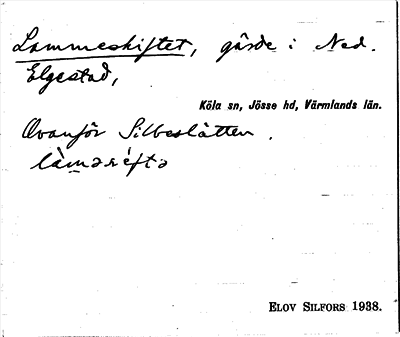 Lammeskiftet, gärde i Ned.
Elgestad,
Köla sn, Jösse hd, Värmlands län.
Ovanför Silbeslåtten.
ELOV SILFORS 1938.